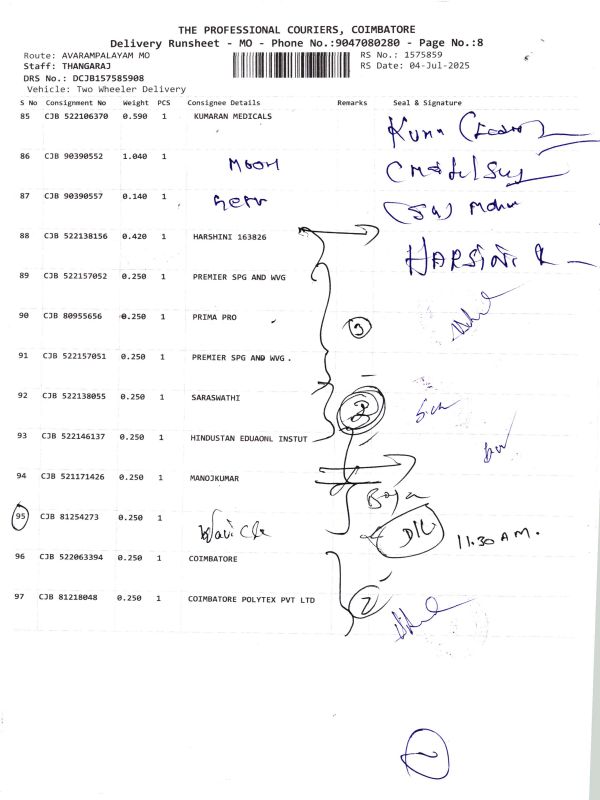 THE PROFESSIONAL COURIERS, COIMBATORE
Delivery Runsheet - MO - Phone No.:9047080280 - Page No.:8
Route: AVARAMPALAYAM MO RS No.: 1575859
Staff: THANGARAJ RS Date: 04-Jul-2025
DRS No.: DCJB157585908
Vehicle: Two Wheeler Delivery
S No Consignment No Weight PCS Consignee Details Remarks Seal & Signature
85 CJB 522106370 0.590 1 KUMARAN MEDICALS
86 CJB 90390552 1.040 1
87 CJB 90390557 0.140 1 Mohan
88 CJB 522138156 0.420 1 HARSHINI 163826 HARSINI R
89 CJB 522157052 0.250 1 PREMIER SPG AND WVG
90 CJB 80955656 0.250 1 PRIMA PRO 3
91 CJB 522157051 0.250 1 PREMIER SPG AND WVG .
92 CJB 522138055 0.250 1 SARASWATHI
93 CJB 522146137 0.250 1 HINDUSTAN EDUAONL INSTUT
94 CJB 521171426 0.250 1 MANOJKUMAR
95 CJB 81254273 0.250 1 11.30 AM.
96 CJB 522063394 0.250 1 COIMBATORE
97 CJB 81218048 0.250 1 COIMBATORE POLYTEX PVT LTD 2